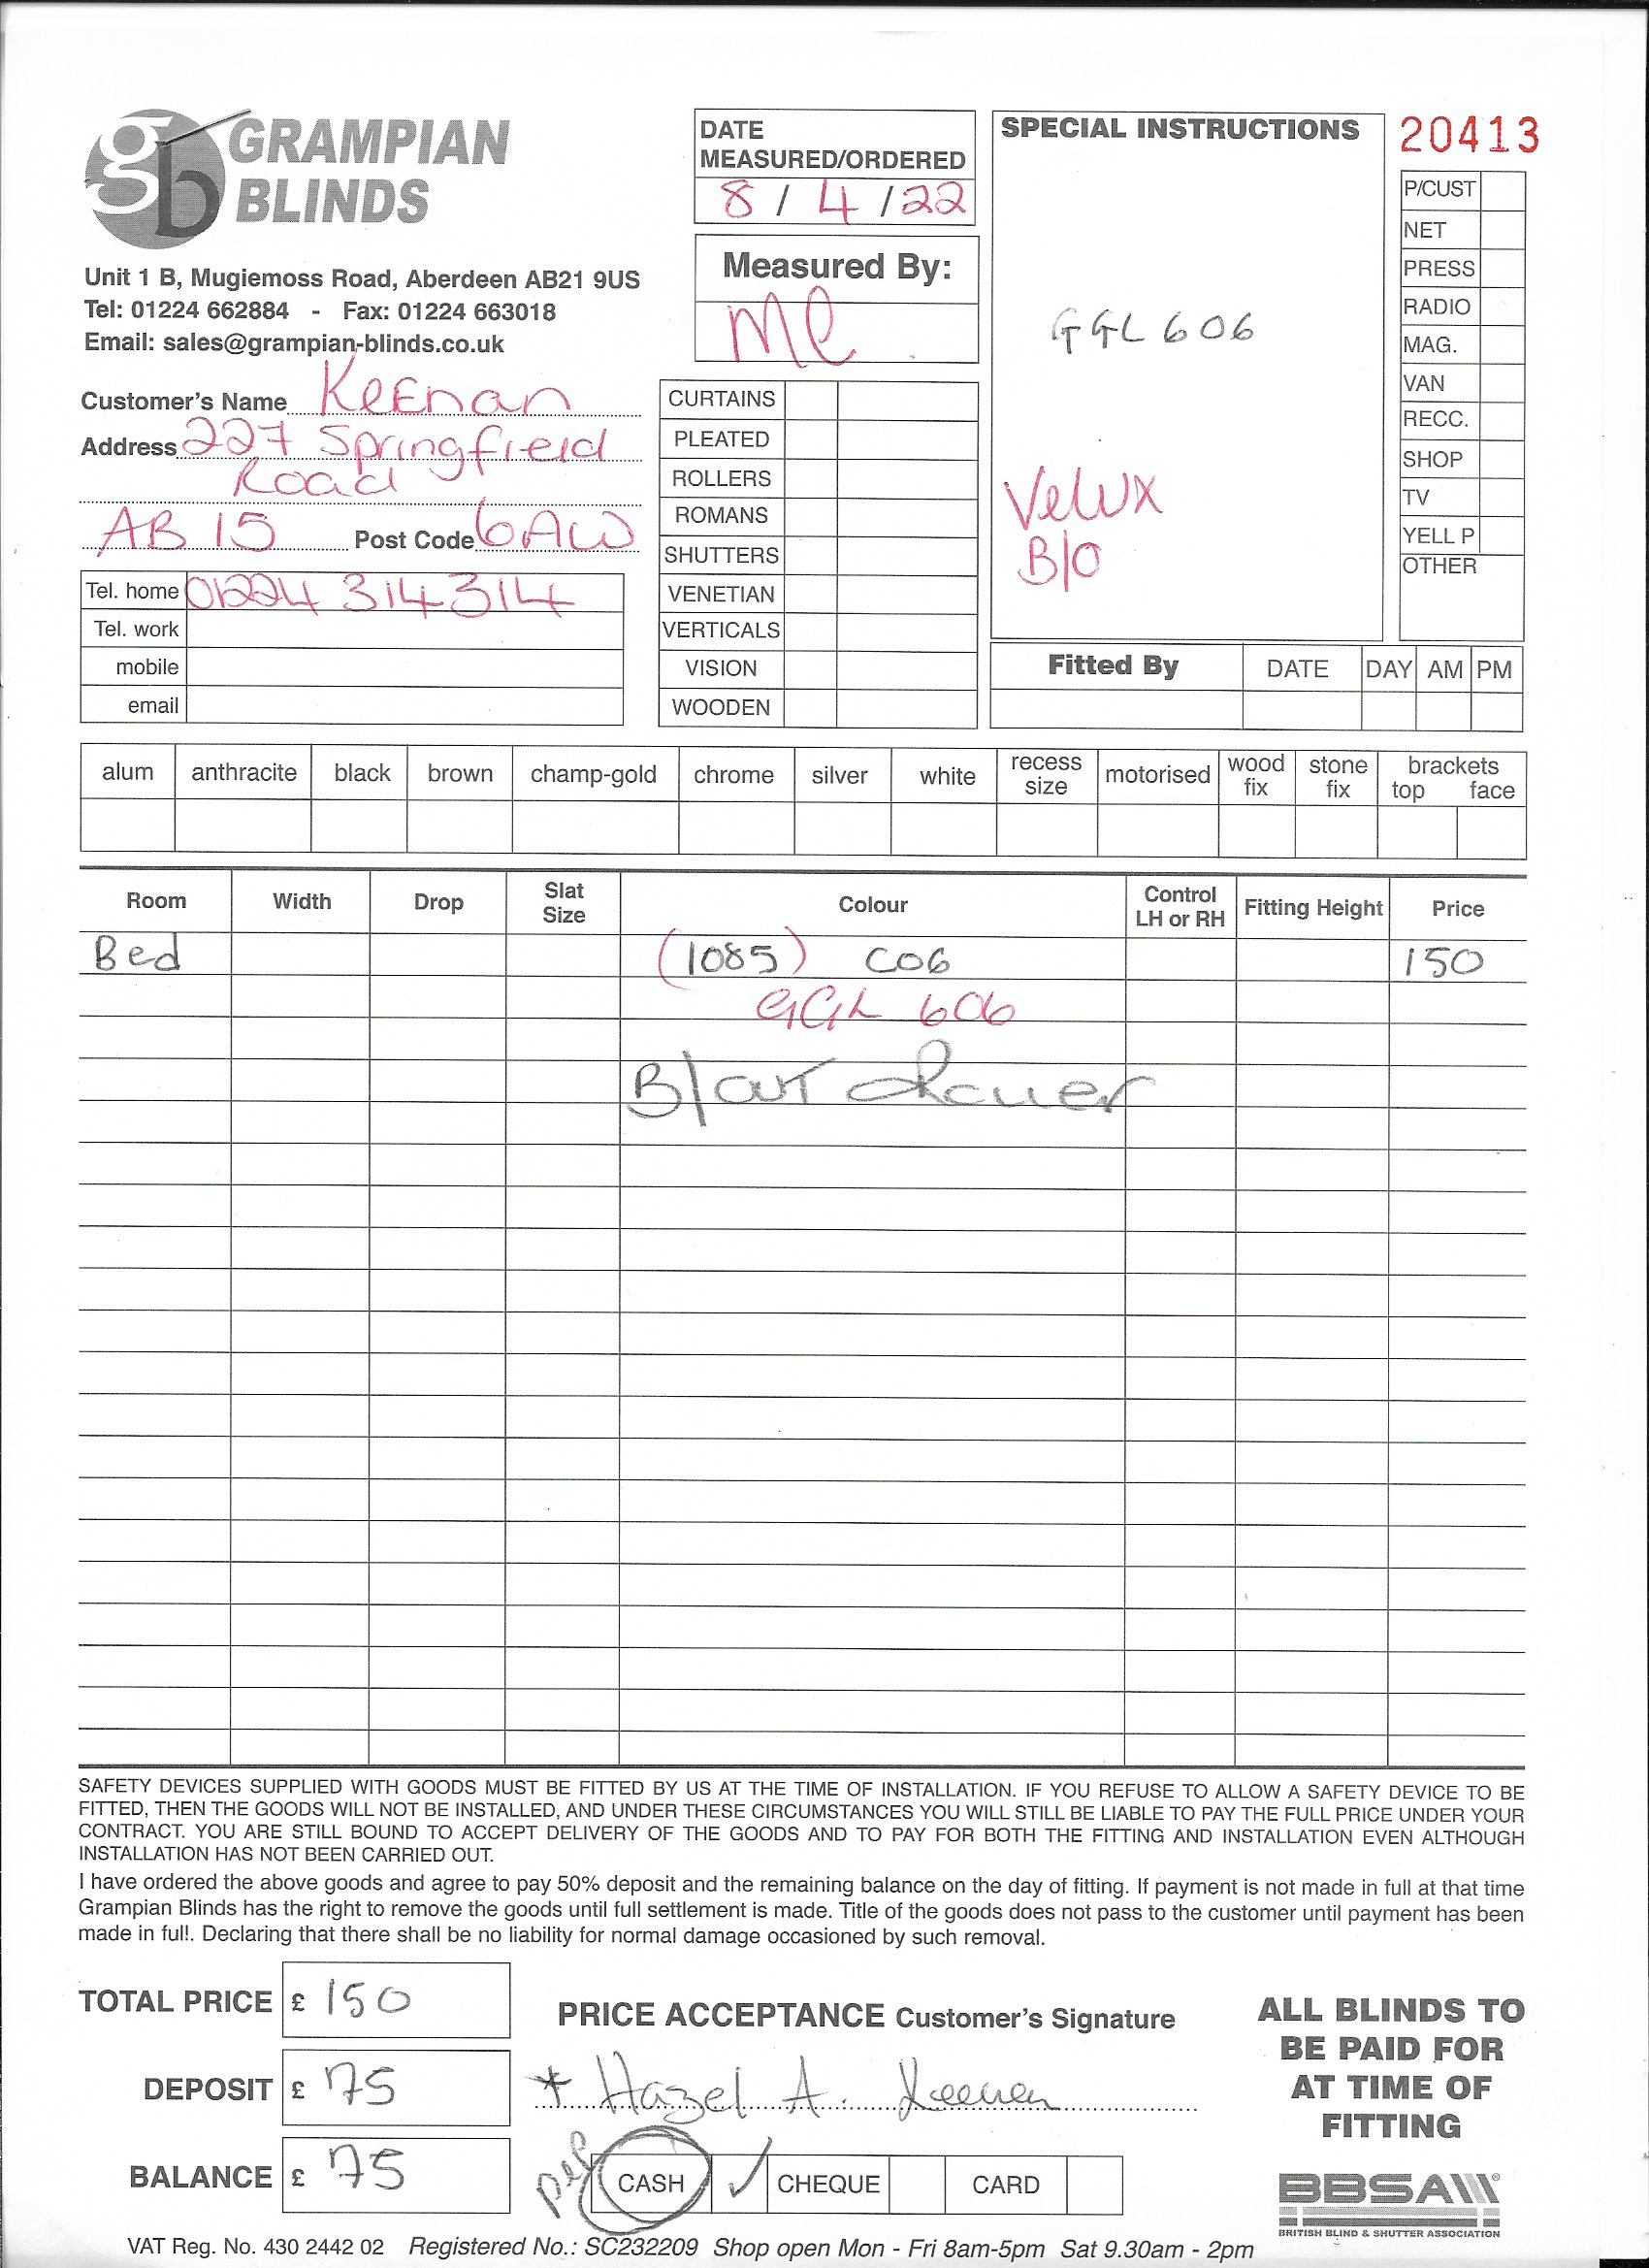 GRAMPIAN
BLINDS
Unit 1 B, Mugiemoss Road, Aberdeen AB21 9US
Tel: 01224 662884 - Fax: 01224 663018
Email: sales@grampian-blinds.co.uk
Customer's Name Keenan
Address 227 Springfield
Road
AB 15 Post Code 6AW
Tel. home 01224 314314
Tel. work
mobile
email
DATE
MEASURED/ORDERED
8 / 4 / 22
Measured By:
CURTAINS
PLEATED
ROLLERS
ROMANS
SHUTTERS
VENETIAN
VERTICALS
VISION
WOODEN
SPECIAL INSTRUCTIONS
GGL 606
Velux
B/O
20413
P/CUST
NET
PRESS
RADIO
MAG.
VAN
RECC.
SHOP
TV
YELL P
OTHER
Fitted By DATE DAY AM PM
alum anthracite black brown champ-gold chrome silver white recess size motorised wood fix stone fix brackets top face
Room Width Drop Slat Size Colour Control LH or RH Fitting Height Price
Bed (1085) C06 150
GGL 606
B/out
SAFETY DEVICES SUPPLIED WITH GOODS MUST BE FITTED BY US AT THE TIME OF INSTALLATION. IF YOU REFUSE TO ALLOW A SAFETY DEVICE TO BE
FITTED, THEN THE GOODS WILL NOT BE INSTALLED, AND UNDER THESE CIRCUMSTANCES YOU WILL STILL BE LIABLE TO PAY THE FULL PRICE UNDER YOUR
CONTRACT. YOU ARE STILL BOUND TO ACCEPT DELIVERY OF THE GOODS AND TO PAY FOR BOTH THE FITTING AND INSTALLATION EVEN ALTHOUGH
INSTALLATION HAS NOT BEEN CARRIED OUT.
I have ordered the above goods and agree to pay 50% deposit and the remaining balance on the day of fitting. If payment is not made in full at that time
Grampian Blinds has the right to remove the goods until full settlement is made. Title of the goods does not pass to the customer until payment has been
made in full. Declaring that there shall be no liability for normal damage occasioned by such removal.
TOTAL PRICE £ 150
DEPOSIT £ 75
BALANCE £ 75
PRICE ACCEPTANCE Customer's Signature
* Hazel A. Keenan
CASH ✓ CHEQUE CARD
ALL BLINDS TO
BE PAID FOR
AT TIME OF
FITTING
BBSA
BRITISH BLIND & SHUTTER ASSOCIATION
VAT Reg. No. 430 2442 02 Registered No.: SC232209 Shop open Mon - Fri 8am-5pm Sat 9.30am - 2pm